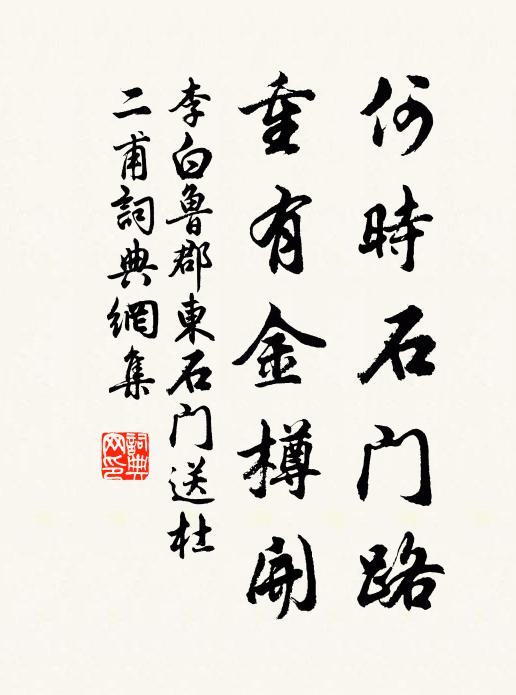 何時石门路
重有金樽開
李白魯郡東石门送杜
二甫詞典網集
詞典
网印